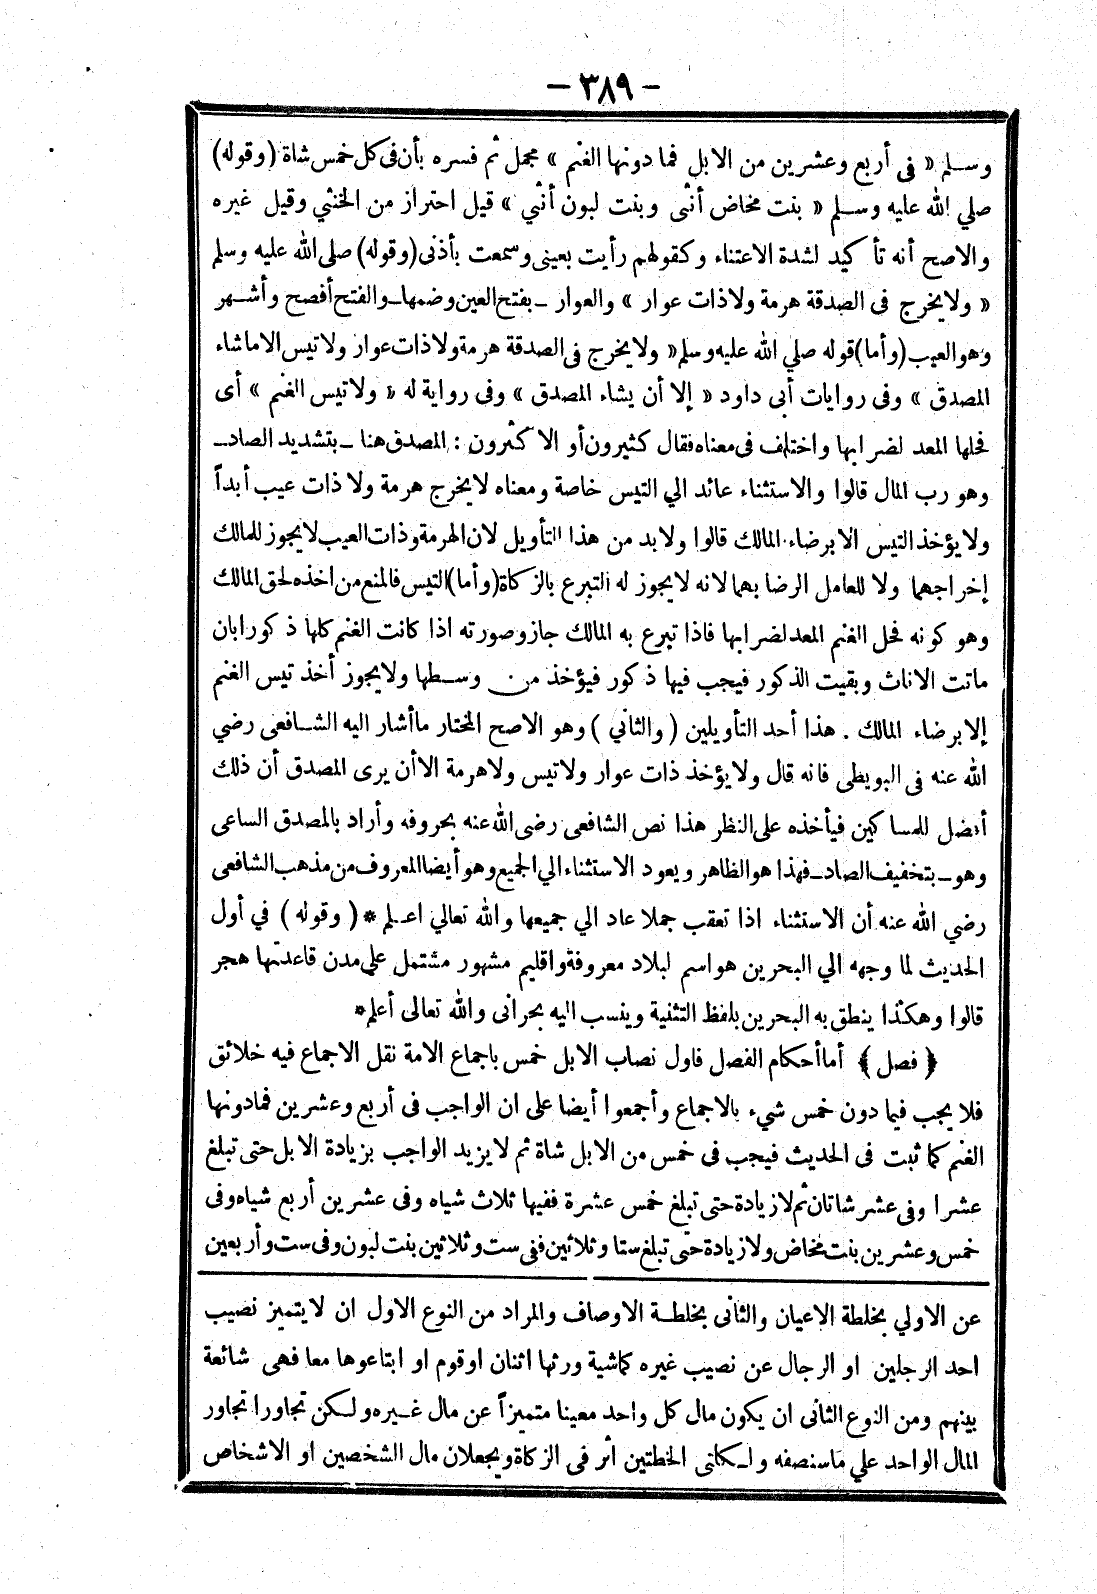 — ٣٨٩ —
وسلم « فى أربع وعشرين من الابل فما دونها الغنم » مجمل ثم فسره بأن فى كل خمس شاة (وقوله)
صلي الله عليه وسلم « بنت مخاض أنثى وبنت لبون أنثي » قيل احتراز من الخنثي وقيل غيره
والاصح أنه تأكيد لشدة الاعتناء وكقولهم رأيت بعينى وسمعت بأذنى (وقوله) صلى الله عليه وسلم
« ولا يخرج فى الصدقة هرمة ولا ذات عوار » والعوار ـ بفتح العين وضمها ـ والفتح أفصح وأشهر
وهو العيب (وأما) قوله صلي الله عليه وسلم « ولا يخرج فى الصدقة هرمة ولا ذات عوار ولا تيس الا ما شاء
المصدق » وفى روايات أبى داود « إلا أن يشاء المصدق » وفى رواية له « ولا تيس الغنم » أى
فحلها المعد لضرابها واختلف فى معناه فقال كثيرون أو الاكثرون : المصدق هنا ـ بتشديد الصاد ـ
وهو رب المال قالوا والاستثناء عائد الي التيس خاصة ومعناه لا يخرج هرمة ولا ذات عيب أبداً
ولا يؤخذ التيس الا برضاء المالك قالوا ولا بد من هذا التأويل لان الهرمة وذات العيب لا يجوز للمالك
إخراجهما ولا للعامل الرضا بهما لانه لا يجوز له التبرع بالزكاة (وأما) التيس فالمنع من اخذه لحق المالك
وهو كونه فحل الغنم المعد لضرابها فاذا تبرع به المالك جاز وصورته اذا كانت الغنم كلها ذكورا بان
ماتت الاناث وبقيت الذكور فيجب فيها ذكور فيؤخذ من وسطها ولا يجوز أخذ تيس الغنم
إلا برضاء المالك . هذا أحد التأويلين ( والثاني ) وهو الاصح المختار ما أشار اليه الشافعى رضي
الله عنه فى البويطى فانه قال ولا يؤخذ ذات عوار ولا تيس ولا هرمة الا أن يرى المصدق أن ذلك
أفضل للمساكين فيأخذه على النظر هذا نص الشافعى رضى الله عنه بحروفه وأراد بالمصدق الساعى
وهو ـ بتخفيف الصاد ـ فهذا هو الظاهر ويعود الاستثناء الي الجميع وهو أيضا المعروف من مذهب الشافعى
رضي الله عنه أن الاستثناء اذا تعقب جملا عاد الي جميعها والله تعالي اعلم * ( وقوله ) في أول
الحديث لما وجهه الي البحرين هو اسم لبلاد معروفة واقليم مشهور مشتمل على مدن قاعدتها هجر
قالوا وهكذا ينطق به البحرين بلفظ التثنية وينسب اليه بحرانى والله تعالى أعلم *
﴿ فصل ﴾ أما أحكام الفصل فاول نصاب الابل خمس باجماع الامة نقل الاجماع فيه خلائق
فلا يجب فيما دون خمس شيء بالاجماع وأجمعوا أيضا على ان الواجب فى أربع وعشرين فما دونها
الغنم كما ثبت فى الحديث فيجب فى خمس من الابل شاة ثم لا يزيد الواجب بزيادة الابل حتى تبلغ
عشرا وفى عشر شاتان ثم لا زيادة حتى تبلغ خمس عشرة ففيها ثلاث شياه وفى عشرين أربع شياه وفى
خمس وعشرين بنت مخاض ولا زيادة حتى تبلغ ستا وثلاثين ففى ست وثلاثين بنت لبون وفى ست وأربعين
عن الاولي بخلطة الاعيان والثانى بخلطة الاوصاف والمراد من النوع الاول ان لا يتميز نصيب
احد الرجلين او الرجال عن نصيب غيره كماشية ورثها اثنان او قوم او ابتاعوها معا فهى شائعة
بينهم ومن النوع الثانى ان يكون مال كل واحد معينا متميزاً عن مال غيره ولكن تجاورا تجاور
المال الواحد علي ما سنصفه ولكلتى الخلطتين اثر فى الزكاة ويجعلان مال الشخصين او الاشخاص